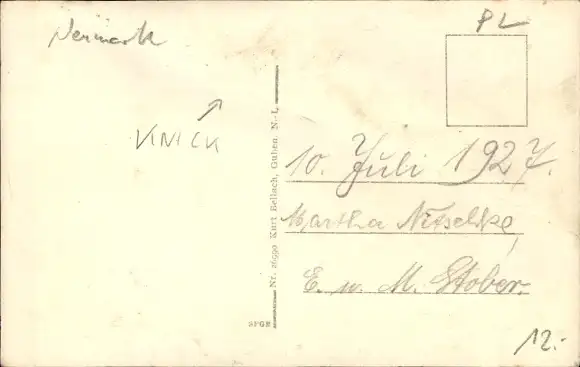 Neumark
PL
KNICK
Nr. 26990 Kurt Bellach, Guben. N.-L.
10. Juli 1927.
Martha Nitschke,
E. u. M. Stober.
12.-